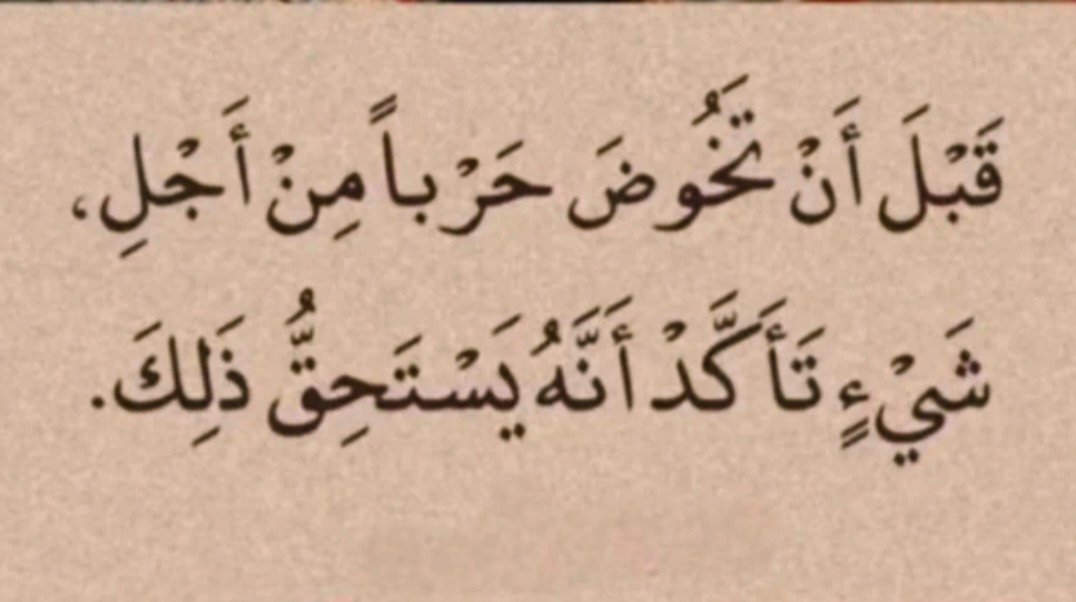 قَبْلَ أَنْ تَخُوضَ حَرْباً مِنْ أَجْلِ،
شَيْءٍ تَأَكَّدْ أَنَّهُ يَسْتَحِقُّ ذَلِكَ.